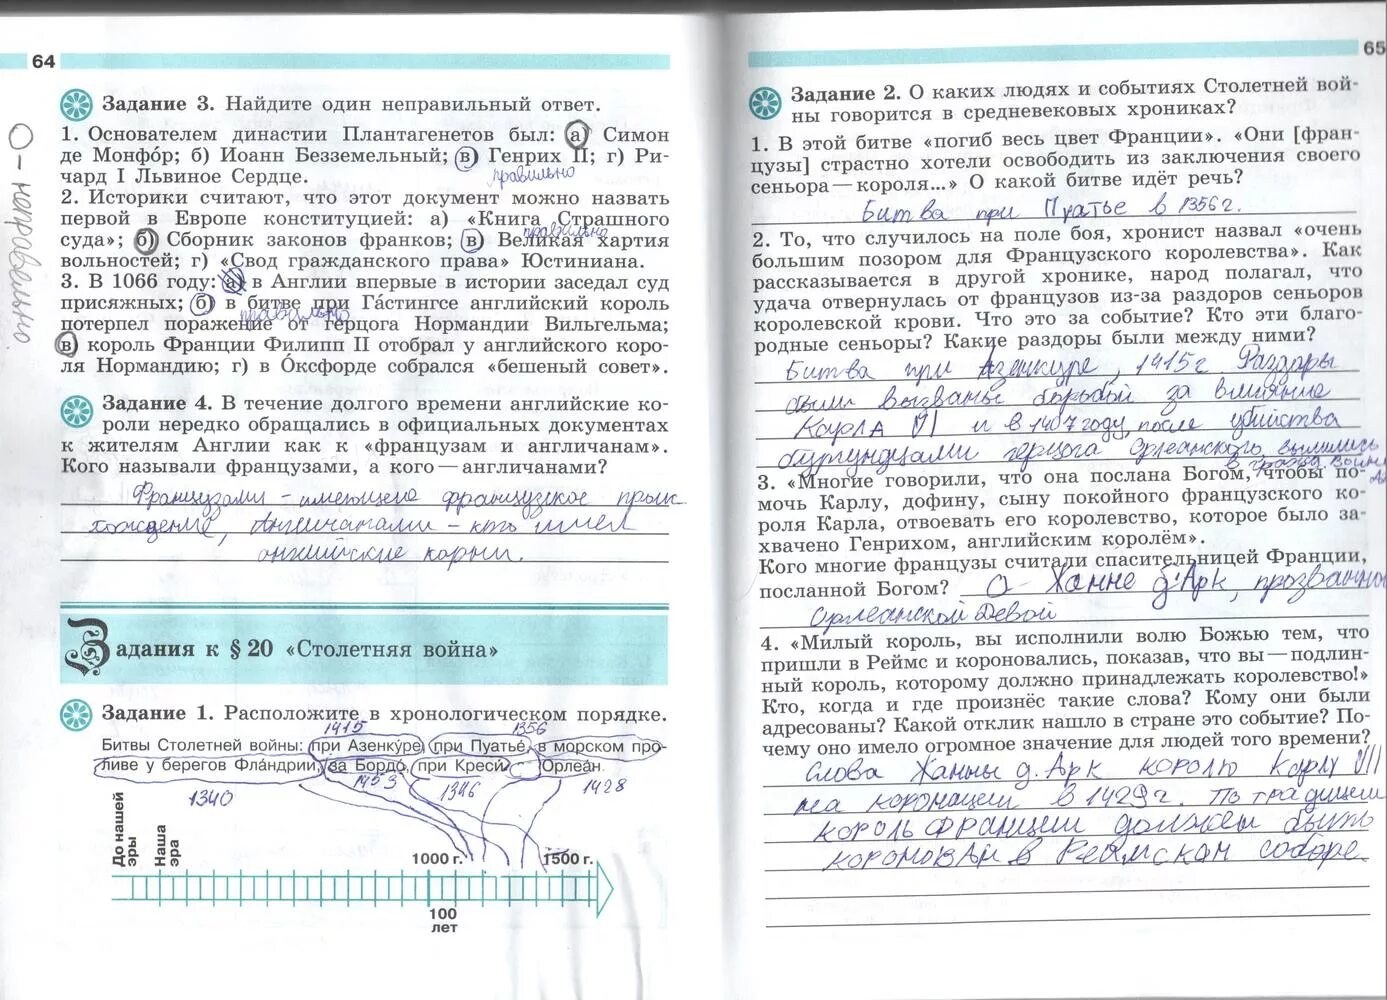 64
Задание 3. Найдите один неправильный ответ.
1. Основателем династии Плантагенетов был: а) Симон
де Монфо́р; б) Иоанн Безземельный; в) Генрих II; г) Ри-
чард I Львиное Сердце.
правильно
2. Историки считают, что этот документ можно назвать
первой в Европе конституцией: а) «Книга Страшного
суда»; б) Сборник законов франков; в) Великая хартия
правильно
вольностей; г) «Свод гражданского права» Юстиниана.
3. В 1066 году: а) в Англии впервые в истории заседал суд
присяжных; б) в битве при Га́стингсе английский король
правильно
потерпел поражение от герцога Нормандии Вильгельма;
в) король Франции Филипп II отобрал у английского коро-
ля Нормандию; г) в О́ксфорде собрался «бешеный совет».
О – неправильно
Задание 4. В течение долгого времени английские ко-
роли нередко обращались в официальных документах
к жителям Англии как к «французам и англичанам».
Кого называли французами, а кого — англичанами?
Французами – имеющего французское проис
хождение, Англичанами – кто имел
английские корни.
Задания к § 20 «Столетняя война»
Задание 1. Расположите в хронологическом порядке.
1415 1356
Битвы Столетней войны: при Азенку́ре, при Пуатье́, в морском про-
ливе у берегов Фла́ндрии, за Бордо́, при Креси́, Орлеа́н.
1340 1453 1346 1428
До нашей эры
Наша эра
1000 г. 1500 г.
100
лет
65
Задание 2. О каких людях и событиях Столетней вой-
ны говорится в средневековых хрониках?
1. В этой битве «погиб весь цвет Франции». «Они [фран-
цузы] страстно хотели освободить из заключения своего
сеньора — короля...» О какой битве идёт речь?
Битва при Пуатье в 1356г.
2. То, что случилось на поле боя, хронист назвал «очень
большим позором для Французского королевства». Как
рассказывается в другой хронике, народ полагал, что
удача отвернулась от французов из-за раздоров сеньоров
королевской крови. Что это за событие? Кто эти благо-
родные сеньоры? Какие раздоры были между ними?
Битва при Азенкуре, 1415г. Раздоры
были вызваны борьбой за влияние
Карла VI и в 1407 году, после убийства
бургундцами герцога Орлеанского, вылились
в гражд. войну
3. «Многие говорили, что она послана Богом, чтобы по-
мочь Карлу, дофину, сыну покойного французского ко-
роля Карла, отвоевать его королевство, которое было за-
хвачено Генрихом, английским королём».
Кого многие французы считали спасительницей Франции,
посланной Богом? О Жанне д'Арк, прозванной
Орлеанской Девой
4. «Милый король, вы исполнили волю Божью тем, что
пришли в Реймс и короновались, показав, что вы — подлин-
ный король, которому должно принадлежать королевство!»
Кто, когда и где произнёс такие слова? Кому они были
адресованы? Какой отклик нашло в стране это событие? По-
чему оно имело огромное значение для людей того времени?
Слова Жанны д. Арк королю Карлу VII
на коронации в 1429г. По традиции
король Франции должен быть
коронован в Реймском соборе.